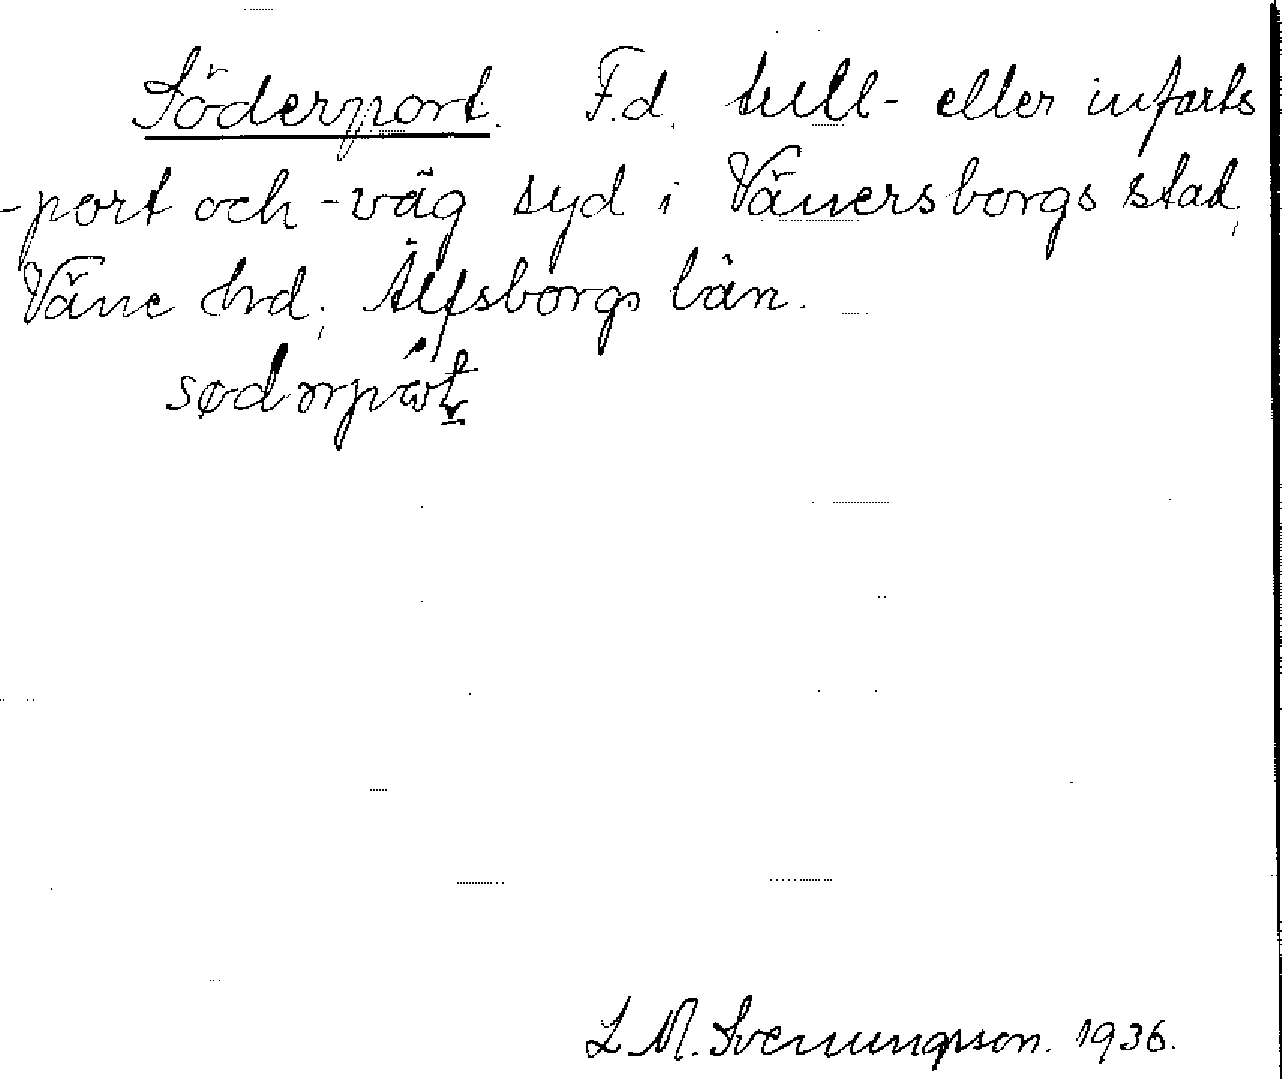 Söderport. F.d. tull- eller infarts
-port och -väg syd i Vänersborgs stad,
Väne hrd, Älfsborgs län.
L M. Svenungsson. 1936.